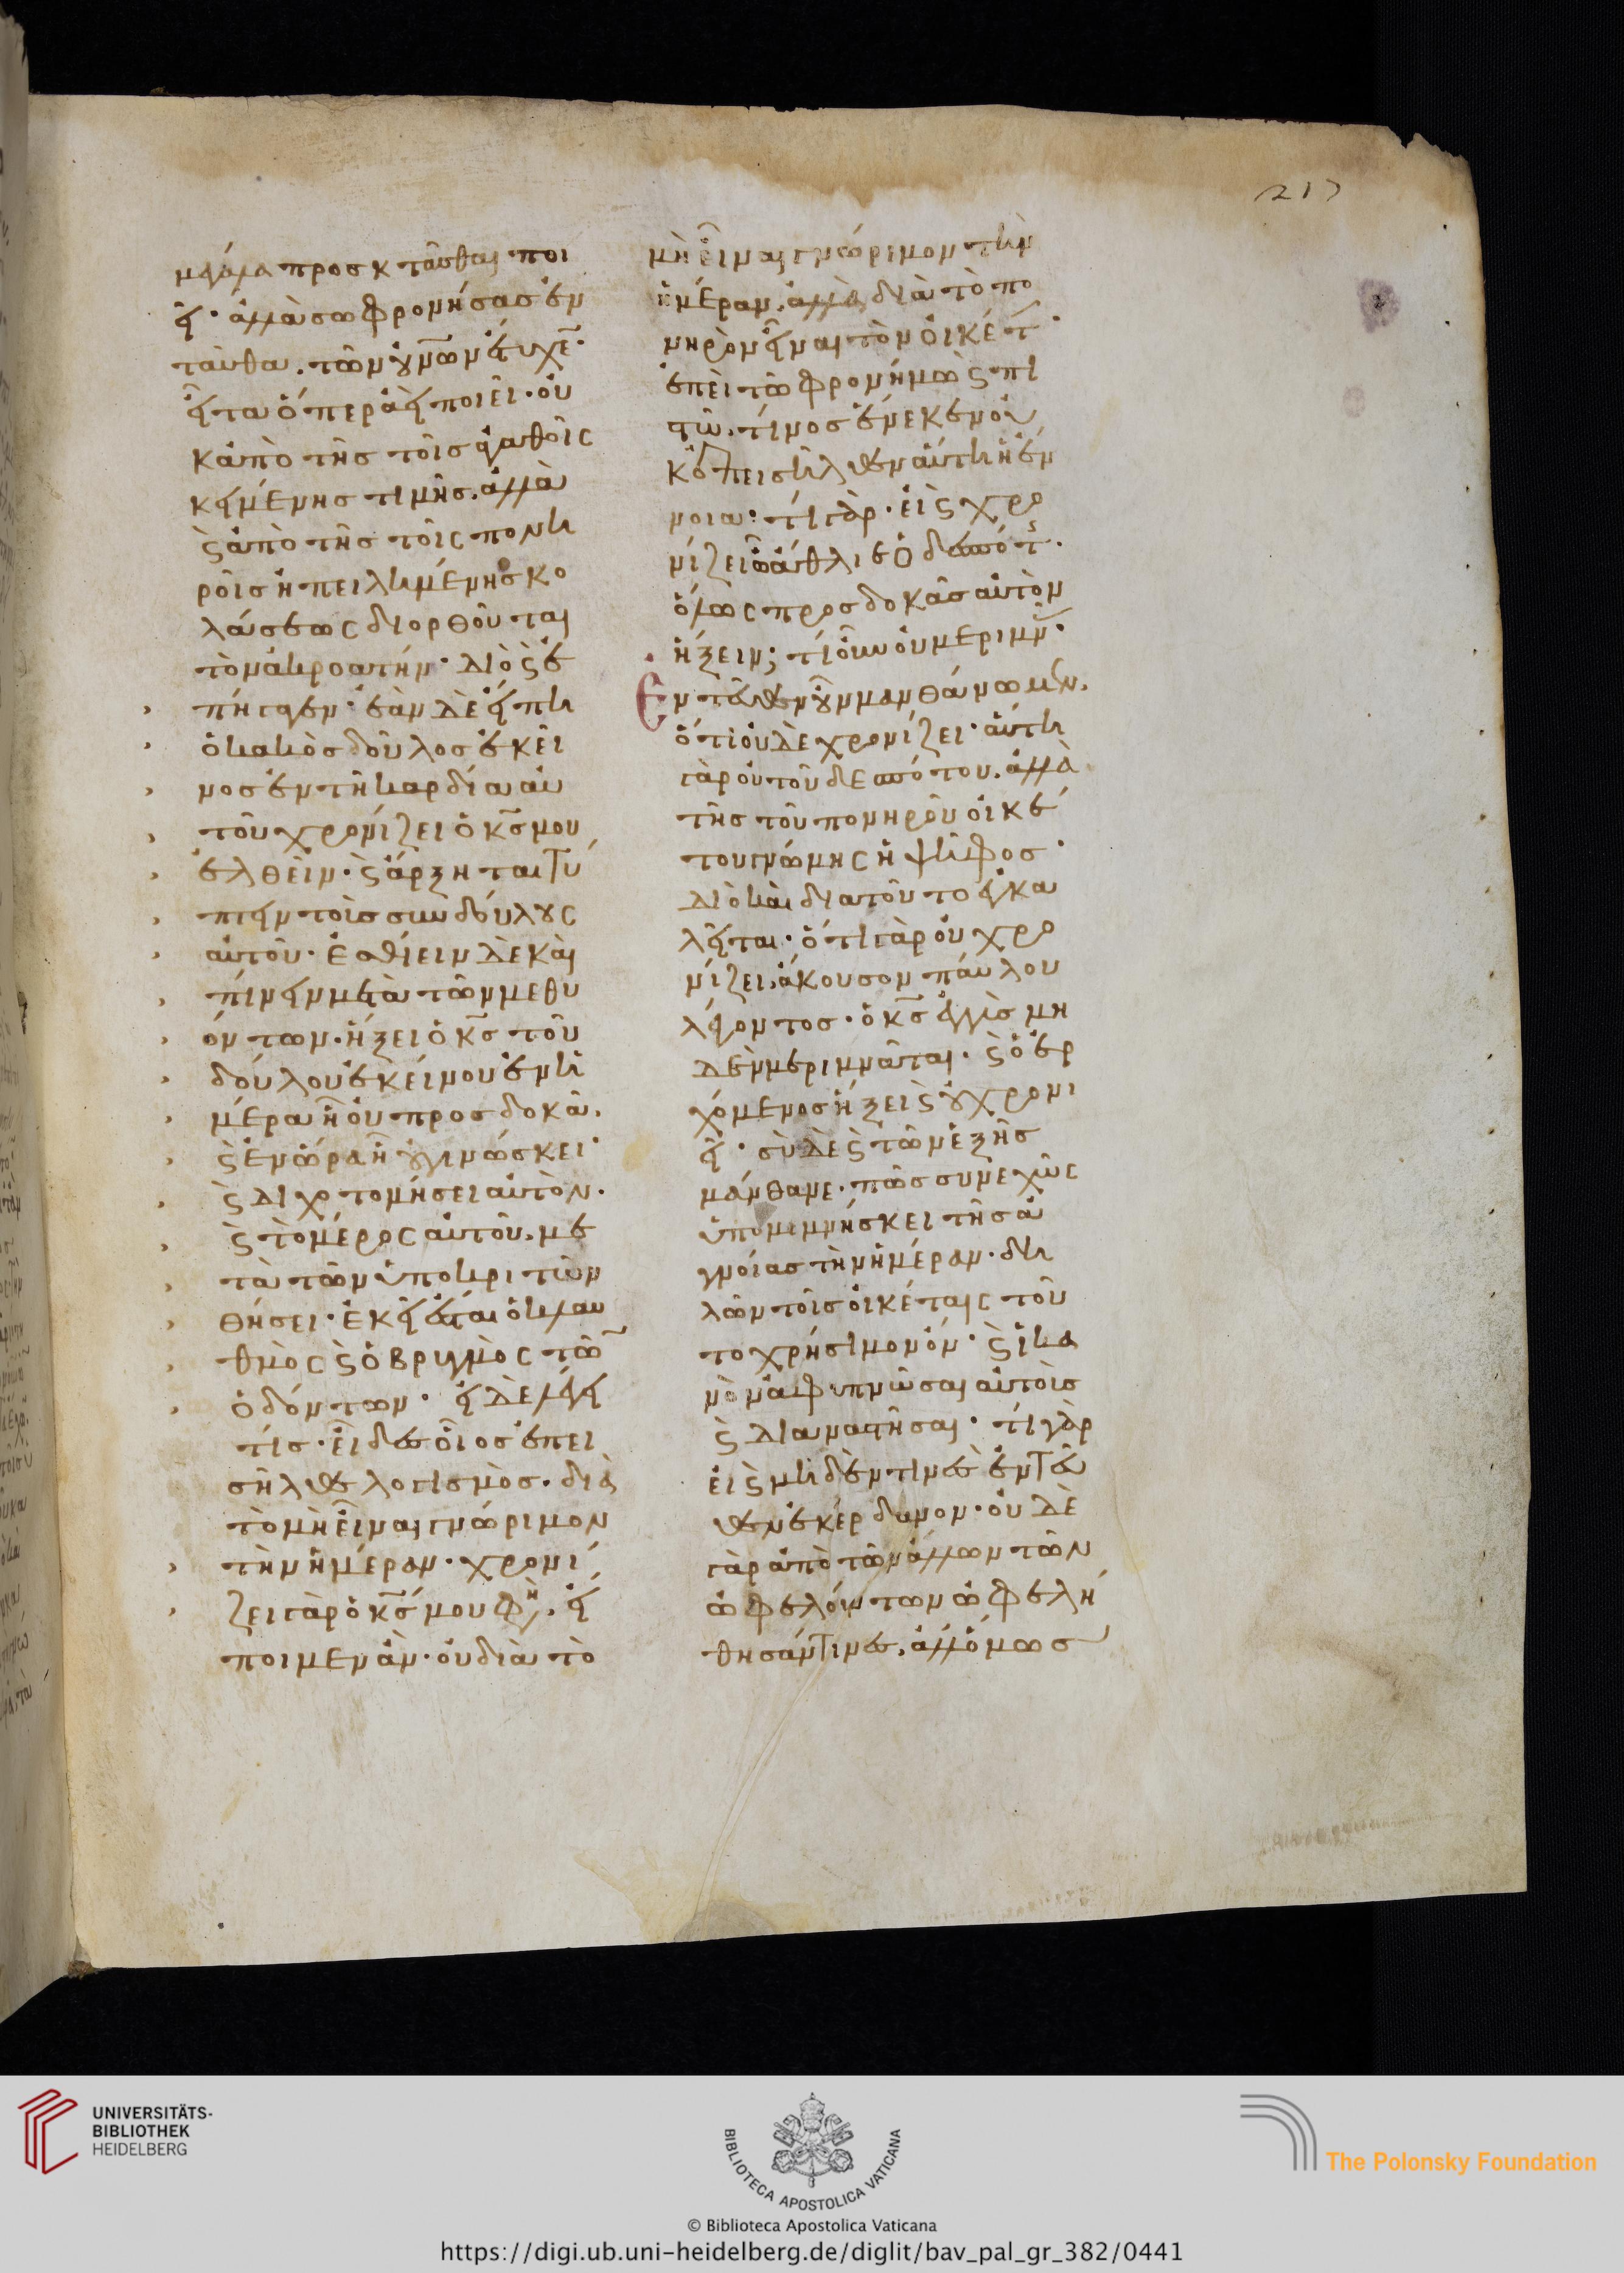 217
μεγάλα προσκτᾶσθαι ποι
εῖ· ἀλλὰ σωφρονήσας ἐν
ταῦθα, τῶν οὐνῶν ἔτυχε̄·
εἶτα ὅπερ ἀεὶ ποιεῖ· οὐ
κ ἀπὸ τῆς τοῖς ἀγαθοῖς
κειμένης τιμῆς, ἀλλὰ
ϗ ἀπὸ τῆς τοῖς πονη
ροῖς ἠπειλημένης κο
λάσεως διορθοῦται
τὸν ἀκροατήν· διὸ ϗ ἐ
πήγαγεν· ἐὰν δὲ εἴπη
ὁ κακὸς δοῦλος ἐκεῖ
νος ἐν τῆ καρδία αὐ
τοῦ χρονίζει ὁ κ̅ς̅ μου
ἐλθεῖν· ϗ ἄρξηται τύ
πτειν τοὺς συνδούλους
αὐτοῦ· ἐσθίειν δὲ καὶ
πίνειν μετὰ τῶν μεθυ
όντων· ἥξει ὁ κ̅ς̅ τοῦ
δούλου ἐκείνου ἐν ἡ
μέρα ἧ οὐ προσδοκᾶ,
ϗ ἐν ὥρα ἧ οὐ γινώσκει·
ϗ διχοτομήσει αὐτόν·
ϗ τὸ μέρος αὐτοῦ, με
τὰ τῶν ὑποκριτῶν
θήσει· ἐκεῖ ἔσται ὁ κλαυ
θμὸς ϗ ὁ βρυγμὸς τῶ̄
ὀδόντων· εἰ δὲ λέγει
τίς· εἶδες οἷος ἐπει
σῆλθε λογισμός· διὰ
τὸ μὴ εἶναι γνώριμον
τὴν ἡμέραν· χρονί
ζει γὰρ ὁ κ̅ς̅ μου φη, εἴ
ποιμεν ἄν· οὐ διὰ τὸ
μὴ εἶναι γνώριμον τὴν
ἡμέραν, ἀλλὰ διὰ τὸ πο
νηρὸν εἶναι τὸν οἰκέτ·
ἐπεὶ τῶ φρονίμω ϗ πι
στῶ, τίνος ἕνεκεν οὐ
κ ἐπεισῆλθεν αὕτη ἡ ἔν
νοια· τί γὰρ· εἰ ϗ χρο
νίζει ὦ ἄθλιε ὁ δεσπότς·
ὅλως προσδοκᾶς αὐτὸν
ἥξειν; τί οὖν οὐ μεριμνᾶς·
Ἐντεῦθεν οὖν μανθάνωμεν,
ὅτι οὐδὲ χρονίζει· αὕτη
γὰρ οὐ τοῦ δεσπότου, ἀλλὰ
τῆς τοῦ πονηροῦ οἰκέ
του γνώμης ἡ ψῆφος·
διὸ καὶ διὰ τοῦτο ἐγκα
λεῖται· ὅτι γὰρ οὐ χρο
νίζει, ἄκουσον παύλου
λέγοντος· ὁ κ̅ς̅ ἐγγὺς μη
δὲν μεριμνᾶται· ϗ ὁ ἐρ
χόμενος ἥξει ϗ οὐ χρονι
εῖ· σὺ δὲ ϗ τῶν ἑξῆς
μάνθανε· πῶς συνεχῶς
ὑπομιμνήσκει τῆς ἀ
γνοίας τὴν ἡμέραν· δη
λῶν τοῖς οἰκέταις τοῦ
το χρήσιμον ὄν· ϗ ἱκα
νὸν ἀφυπνῶσαι αὐτοὺς
ϗ διαναστῆσαι· τί γὰρ
εἰ ϗ μηδέν τινες ἐντεῦ
θεν ἐκέρδανον· οὐδὲ
γὰρ ἀπὸ τῶν ἄλλων τῶν
ὠφελούντων ὠφελή
θησάν τινες, ἀλλ' ὅμως
UNIVERSITÄTS-
BIBLIOTHEK
HEIDELBERG
BIBLIOTECA APOSTOLICA VATICANA
The Polonsky Foundation
© Biblioteca Apostolica Vaticana
https://digi.ub.uni-heidelberg.de/diglit/bav_pal_gr_382/0441